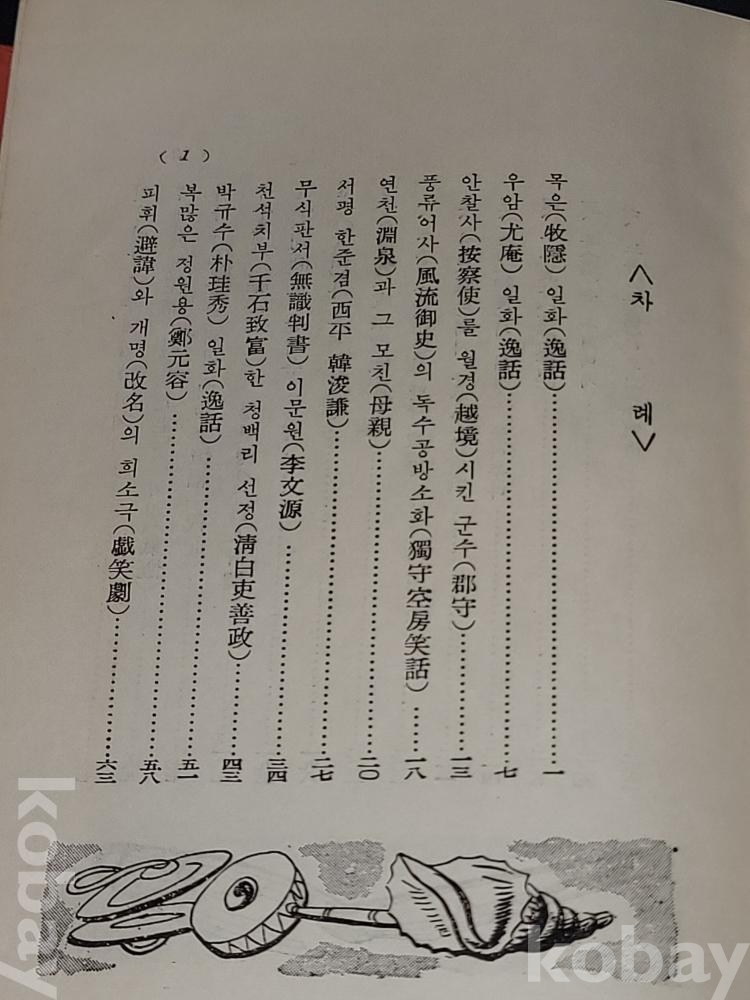 <차 례>
목은(牧隱) 일화(逸話)……………………一
우암(尤庵) 일화(逸話)……………………七
안찰사(按察使)를 월경(越境)시킨 군수(郡守)……………一三
풍류어사(風流御史)의 독수공방소화(獨守空房笑話)……一八
연천(淵泉)과 그 모친(母親)……………………二〇
서평 한준겸(西平 韓浚謙)……………………二七
무식판서(無識判書) 이문원(李文源)……………………三四
천석치부(千石致富)한 청백리 선정(淸白吏善政)…………四三
박규수(朴珪秀) 일화(逸話)……………………五一
복많은 정원용(鄭元容)……………………五八
피휘(避諱)와 개명(改名)의 희소극(戱笑劇)……………六三
(1)
kobay
kobay